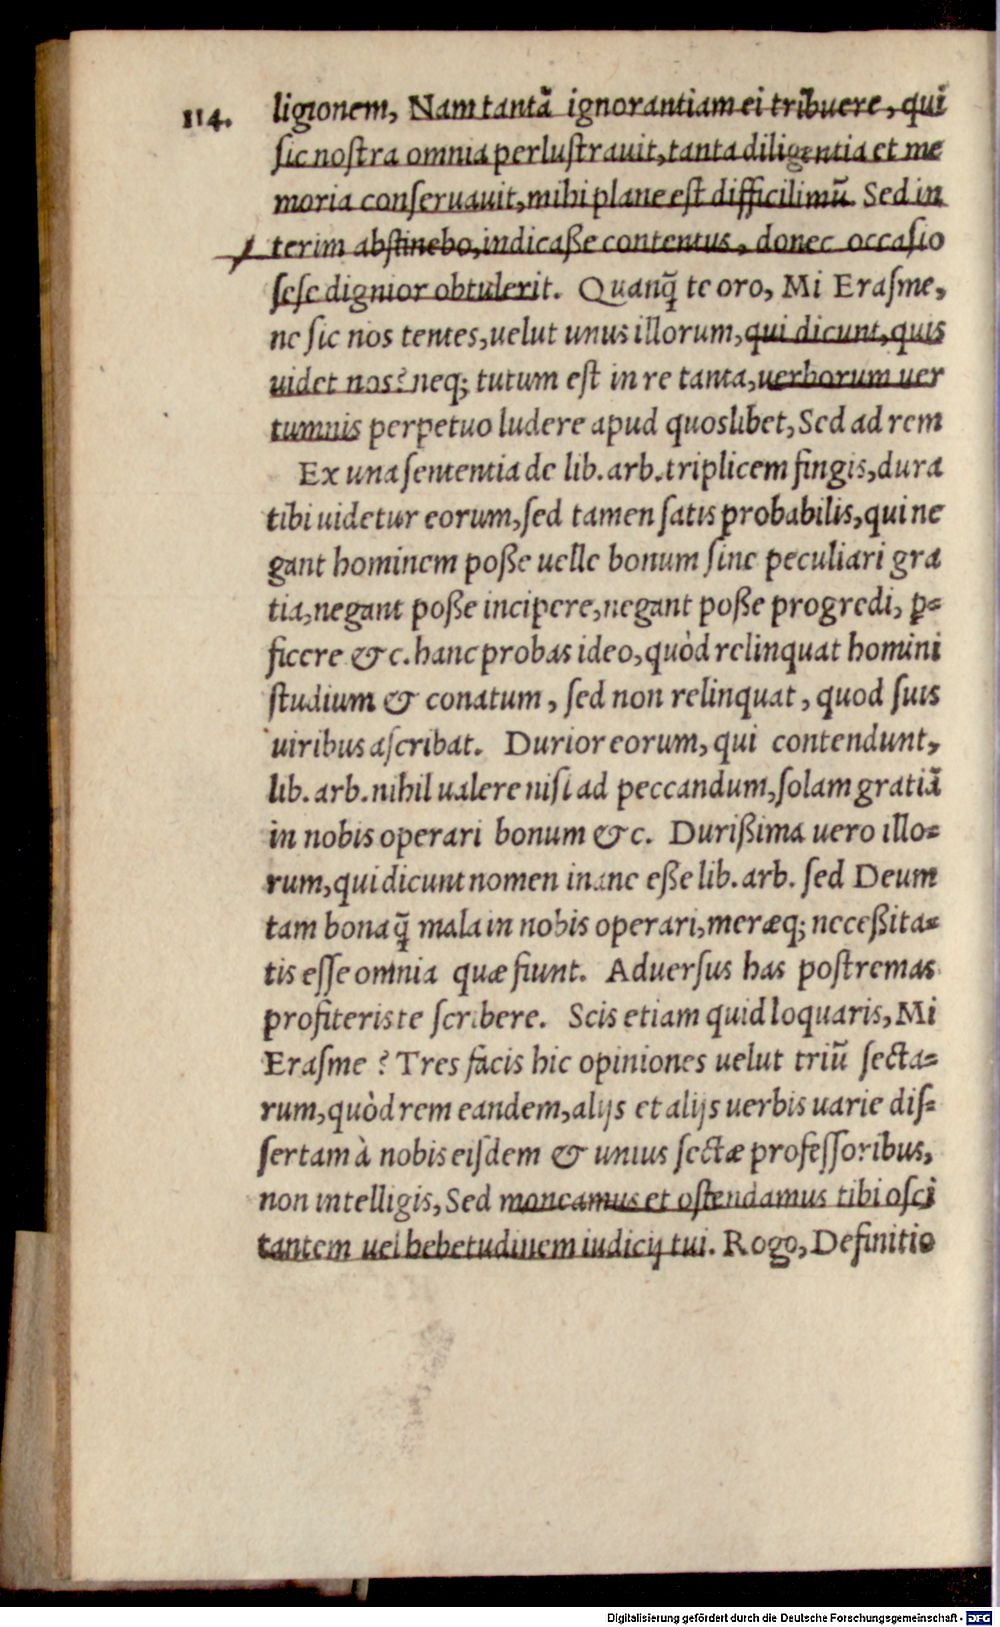 114.
ligionem, Nam tantā ignorantiam ei tribuere, qui
sic nostra omnia perlustrauit, tanta diligentia et me
moria conseruauit, mihi plane est difficilimū. Sed in
terim abstinebo, indicaße contentus, donec occasio
sese dignior obtulerit. Quanq̃ te oro, Mi Erasme,
ne sic nos tentes, uelut unus illorum, qui dicunt, quis
uidet nos? neq; tutum est in re tanta, uerborum uer
tumnis perpetuo ludere apud quoslibet, Sed ad rem
Ex una sententia de lib. arb. triplicem fingis, dura
tibi uidetur eorum, sed tamen satis probabilis, qui ne
gant hominem poße uelle bonum sine peculiari gra
tia, negant poße incipere, negant poße progredi, ꝑ=
ficere &c. hanc probas ideo, quòd relinquat homini
studium & conatum, sed non relinquat, quod suis
uiribus ascribat. Durior eorum, qui contendunt,
lib. arb. nihil ualere nisi ad peccandum, solam gratiā
in nobis operari bonum &c. Durißima uero illo=
rum, qui dicunt nomen inane eße lib. arb. sed Deum
tam bona q̃ mala in nobis operari, meræq; neceßita=
tis esse omnia quæ fiunt. Aduersus has postremas
profiteris te scribere. Scis etiam quid loquaris, Mi
Erasme? Tres facis hic opiniones uelut triū secta=
rum, quòd rem eandem, alijs et alijs uerbis uarie dis=
sertam à nobis eisdem & unius sectæ professoribus,
non intelligis, Sed moneamus et ostendamus tibi osci
tantem uel hebetudinem iudicij tui. Rogo, Definitio
Digitalisierung gefördert durch die Deutsche Forschungsgemeinschaft - DFG